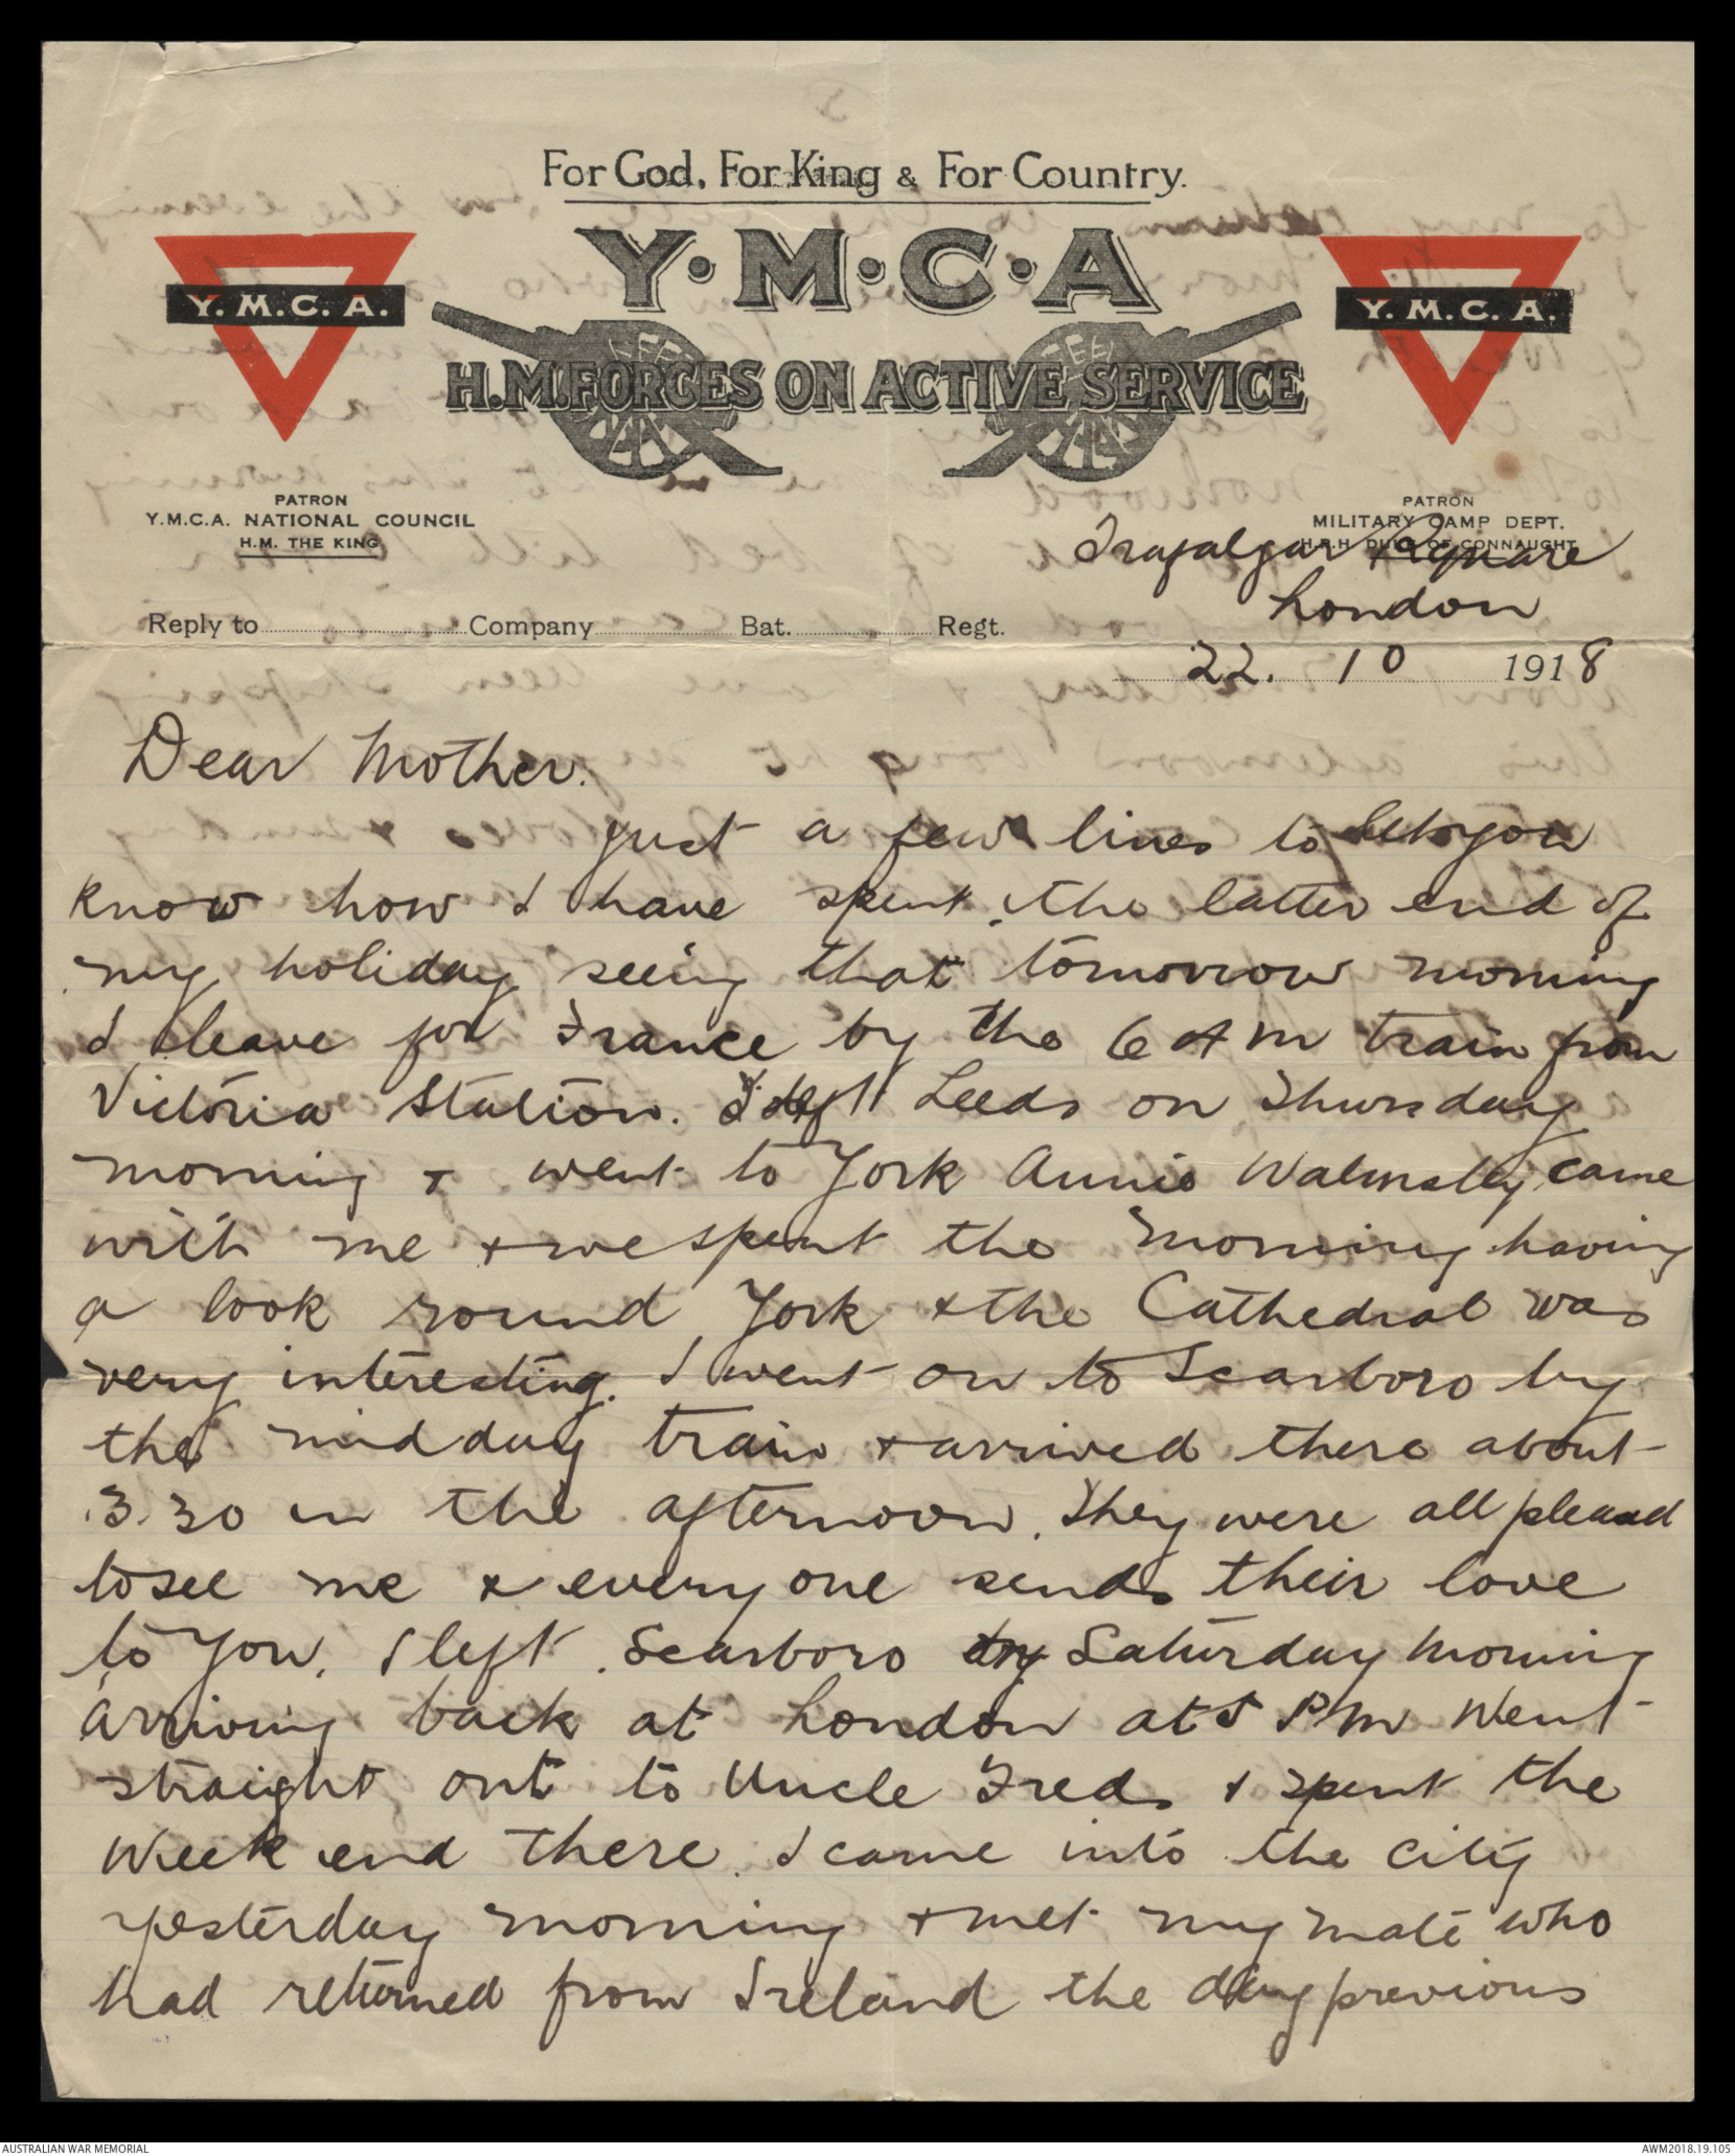 For God, For King & For Country.
Y·M·C·A
Y. M. C. A.
Y. M. C. A.
H.M. FORCES ON ACTIVE SERVICE
PATRON
Y.M.C.A. NATIONAL COUNCIL
H.M. THE KING
PATRON
MILITARY CAMP DEPT.
H.R.H. DUKE OF CONNAUGHT
Trafalgar Square
London
Reply to Company Bat. Regt.
22. 10 1918
Dear Mother.
Just a few lines to let you
know how I have spent the latter end of
my holiday seeing that tomorrow morning
I leave for France by the 6 AM train from
Victoria Station. I left Leeds on Thursday
morning & went to York Annie Walmsley came
with me & we spent the morning having
a look round York & the Cathedral was
very interesting. I went on to Scarboro by
the midday train & arrived there about
3.30 in the afternoon. They were all pleased
to see me & everyone sends their love
to You. I left Scarboro Saturday morning
arriving back at London at 5 PM Went
straight out to Uncle Freds & spent the
Week end there. I came into the city
yesterday morning & met my mate who
had returned from Ireland the day previous
AUSTRALIAN WAR MEMORIAL
AWM2018.19.105